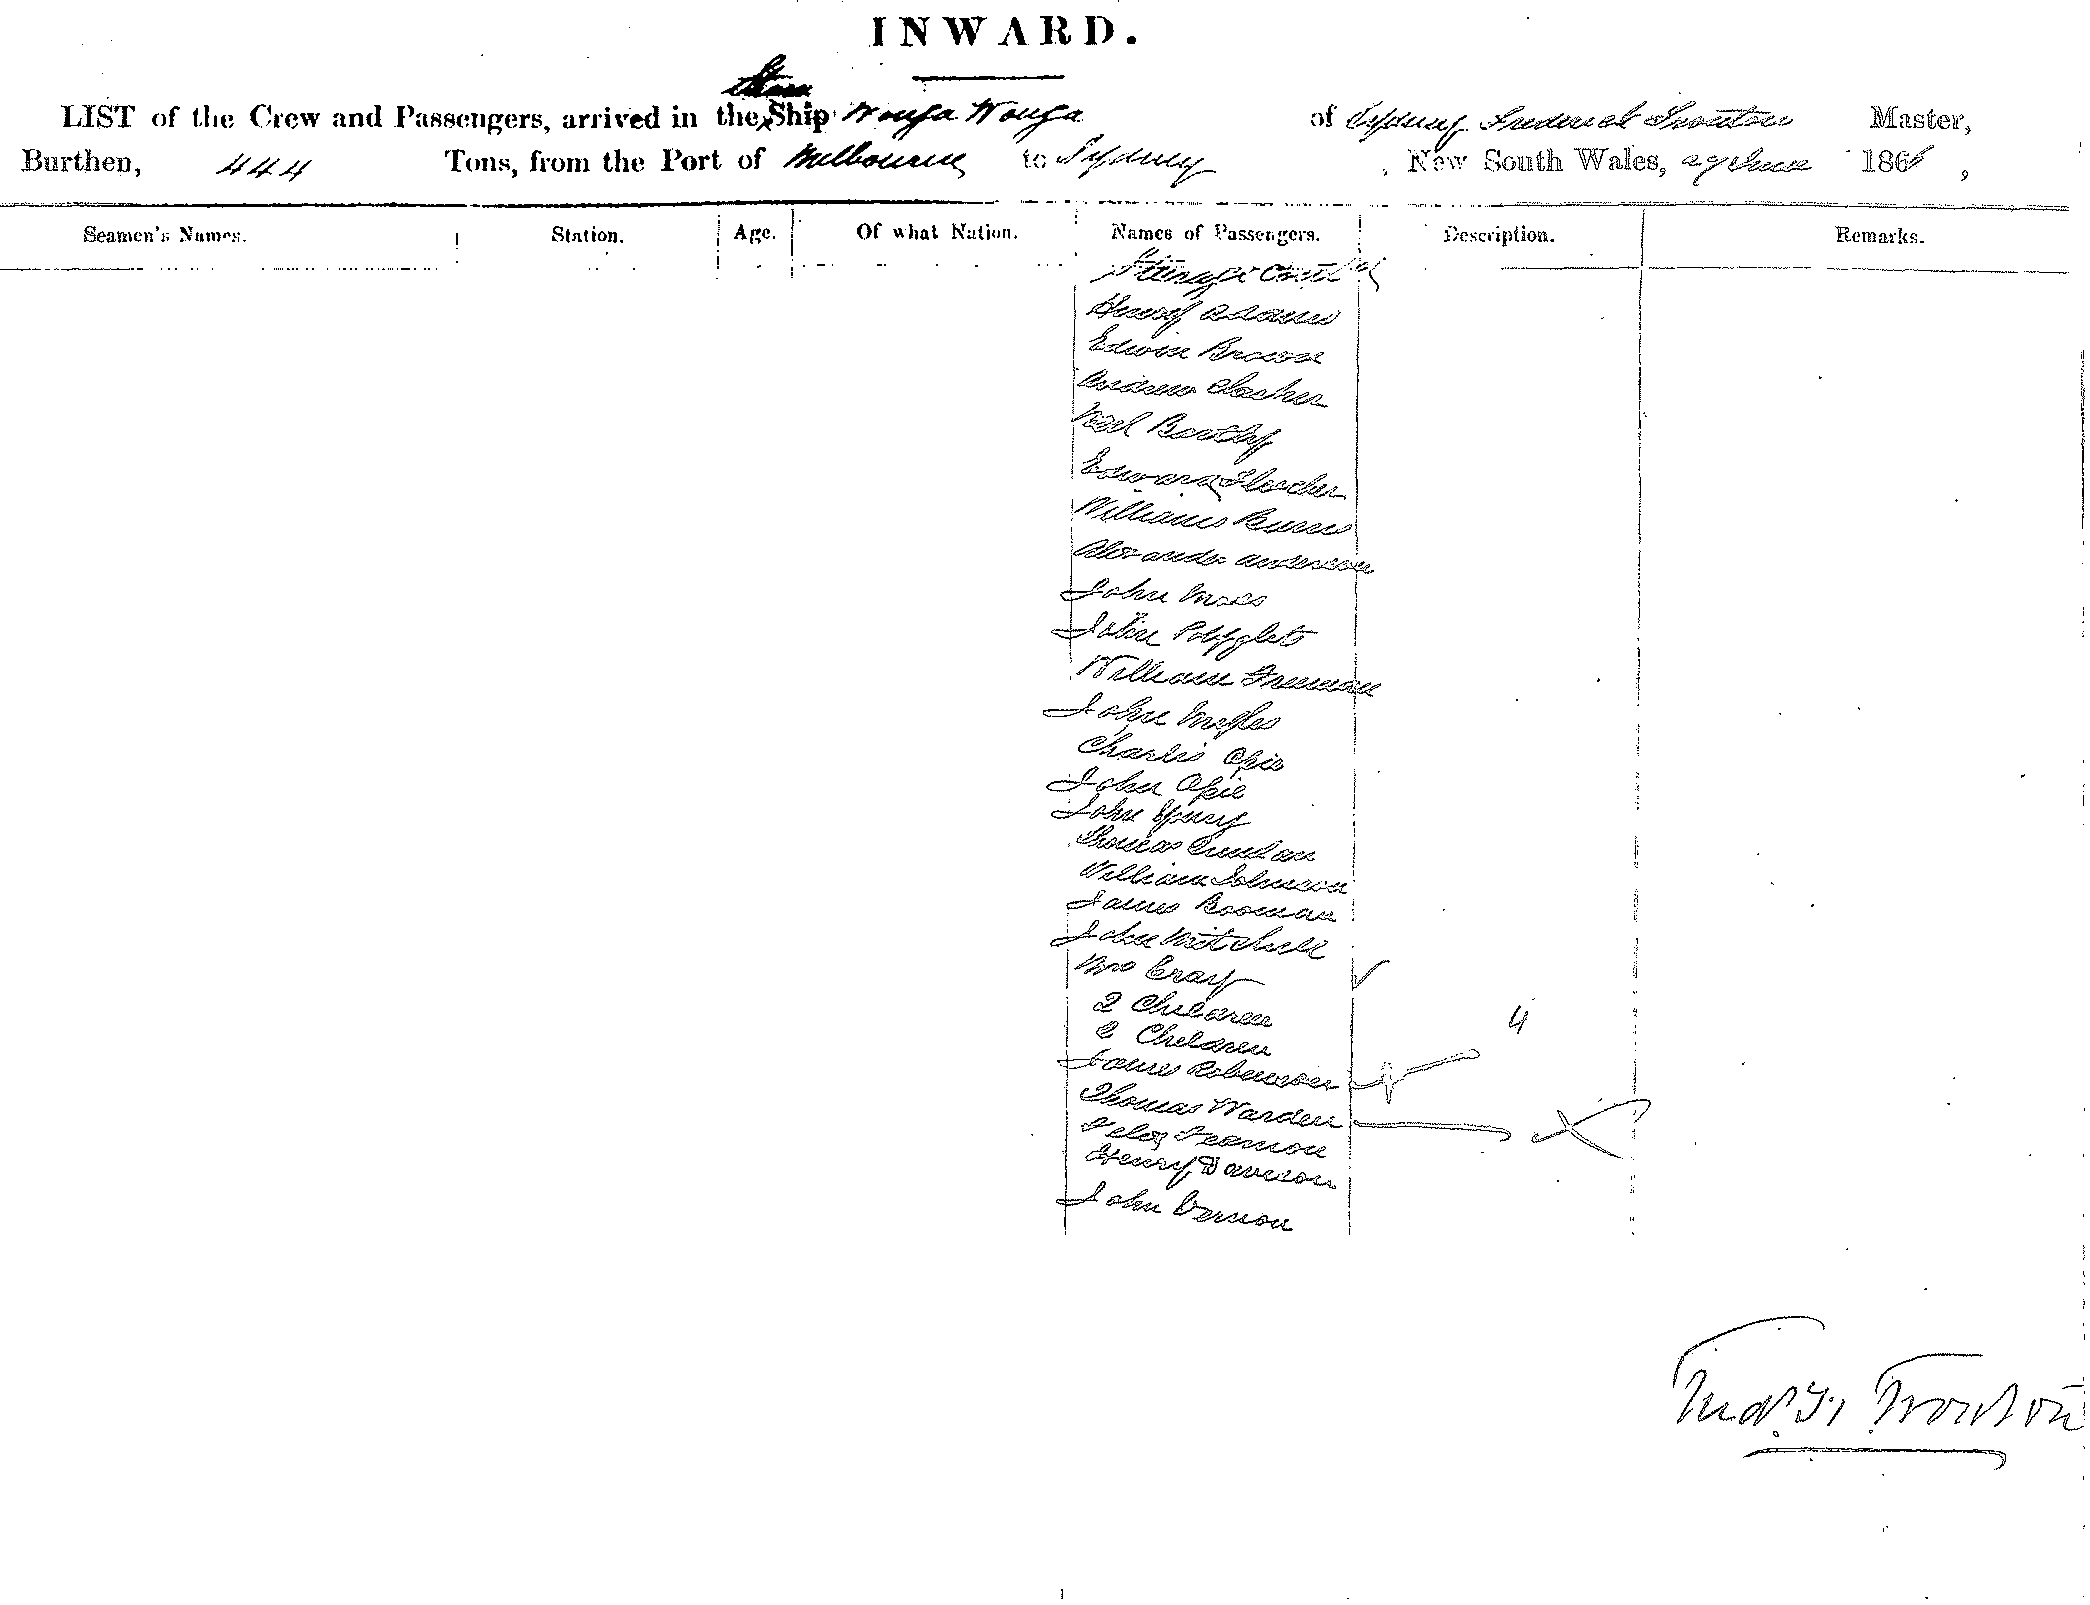 INWARD.
LIST of the Crew and Passengers, arrived in the Steam Ship Wonga Wonga of Sydney Frederick Trouton Master,
Burthen, 444 Tons, from the Port of Melbourne to Sydney, New South Wales, June 186
Seamen's Names. Station. Age. Of what Nation. Names of Passengers. Description. Remarks.
Steerage Contd
Henry Adams
Edwin Brown
Andrew Clacher
Edward Fletcher
William Burns
Alexander Anderson
John Moss
John Polyglets
William Freeman
John Myles
Charles Opie
John Opie
John Young
Thomas Quinlan
William Johnson
James Booman
John Mitchell
Mrs Cray
2 Children
2 Children 4
James Robinson
Thomas Warden
Felix Fearnon
Henry Davison
John Vernon
Fredk. Trouton